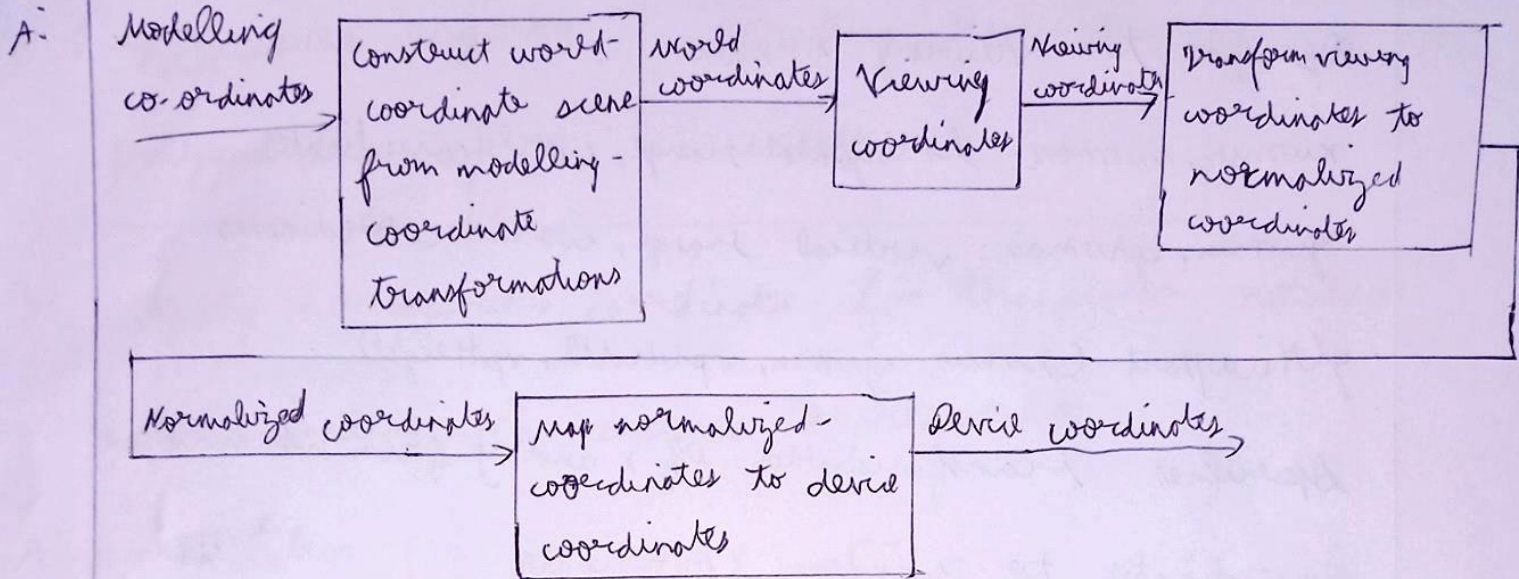 A.
Modelling
co-ordinates
Construct world-
coordinate scene
from modelling-
coordinate
transformations
World
coordinates
Viewing
coordinates
Viewing
coordinates
Transform viewing
coordinates to
normalized
coordinates
Normalized coordinates
Map normalized-
coordinates to device
coordinates
Device coordinates